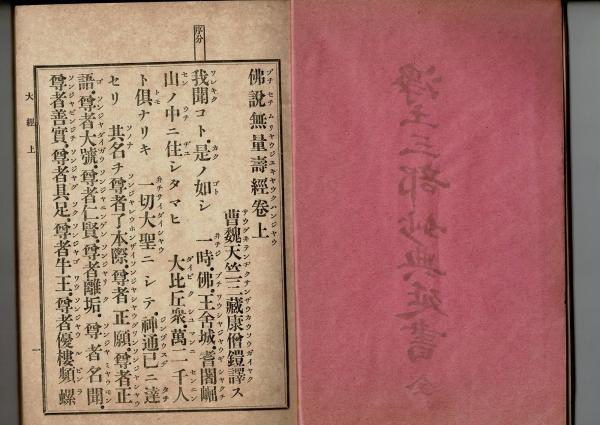 淨土三部妙典延書 全
序分
佛說無量壽經卷上
曹魏天竺三藏康僧鎧譯ス
我聞コト.是ノ如シ 一時.佛.王舍城.耆闍崛
山ノ中ニ住シタマヒ 大比丘衆.萬二千人
ト俱ナリキ 一切大聖ニシテ.神通已ニ達
セリ 其名チ尊者了本際.尊者正願.尊者正
語.尊者大號.尊者仁賢.尊者離垢.尊者名聞.
尊者善實.尊者具足.尊者牛王.尊者優樓頻螺
大經上
一